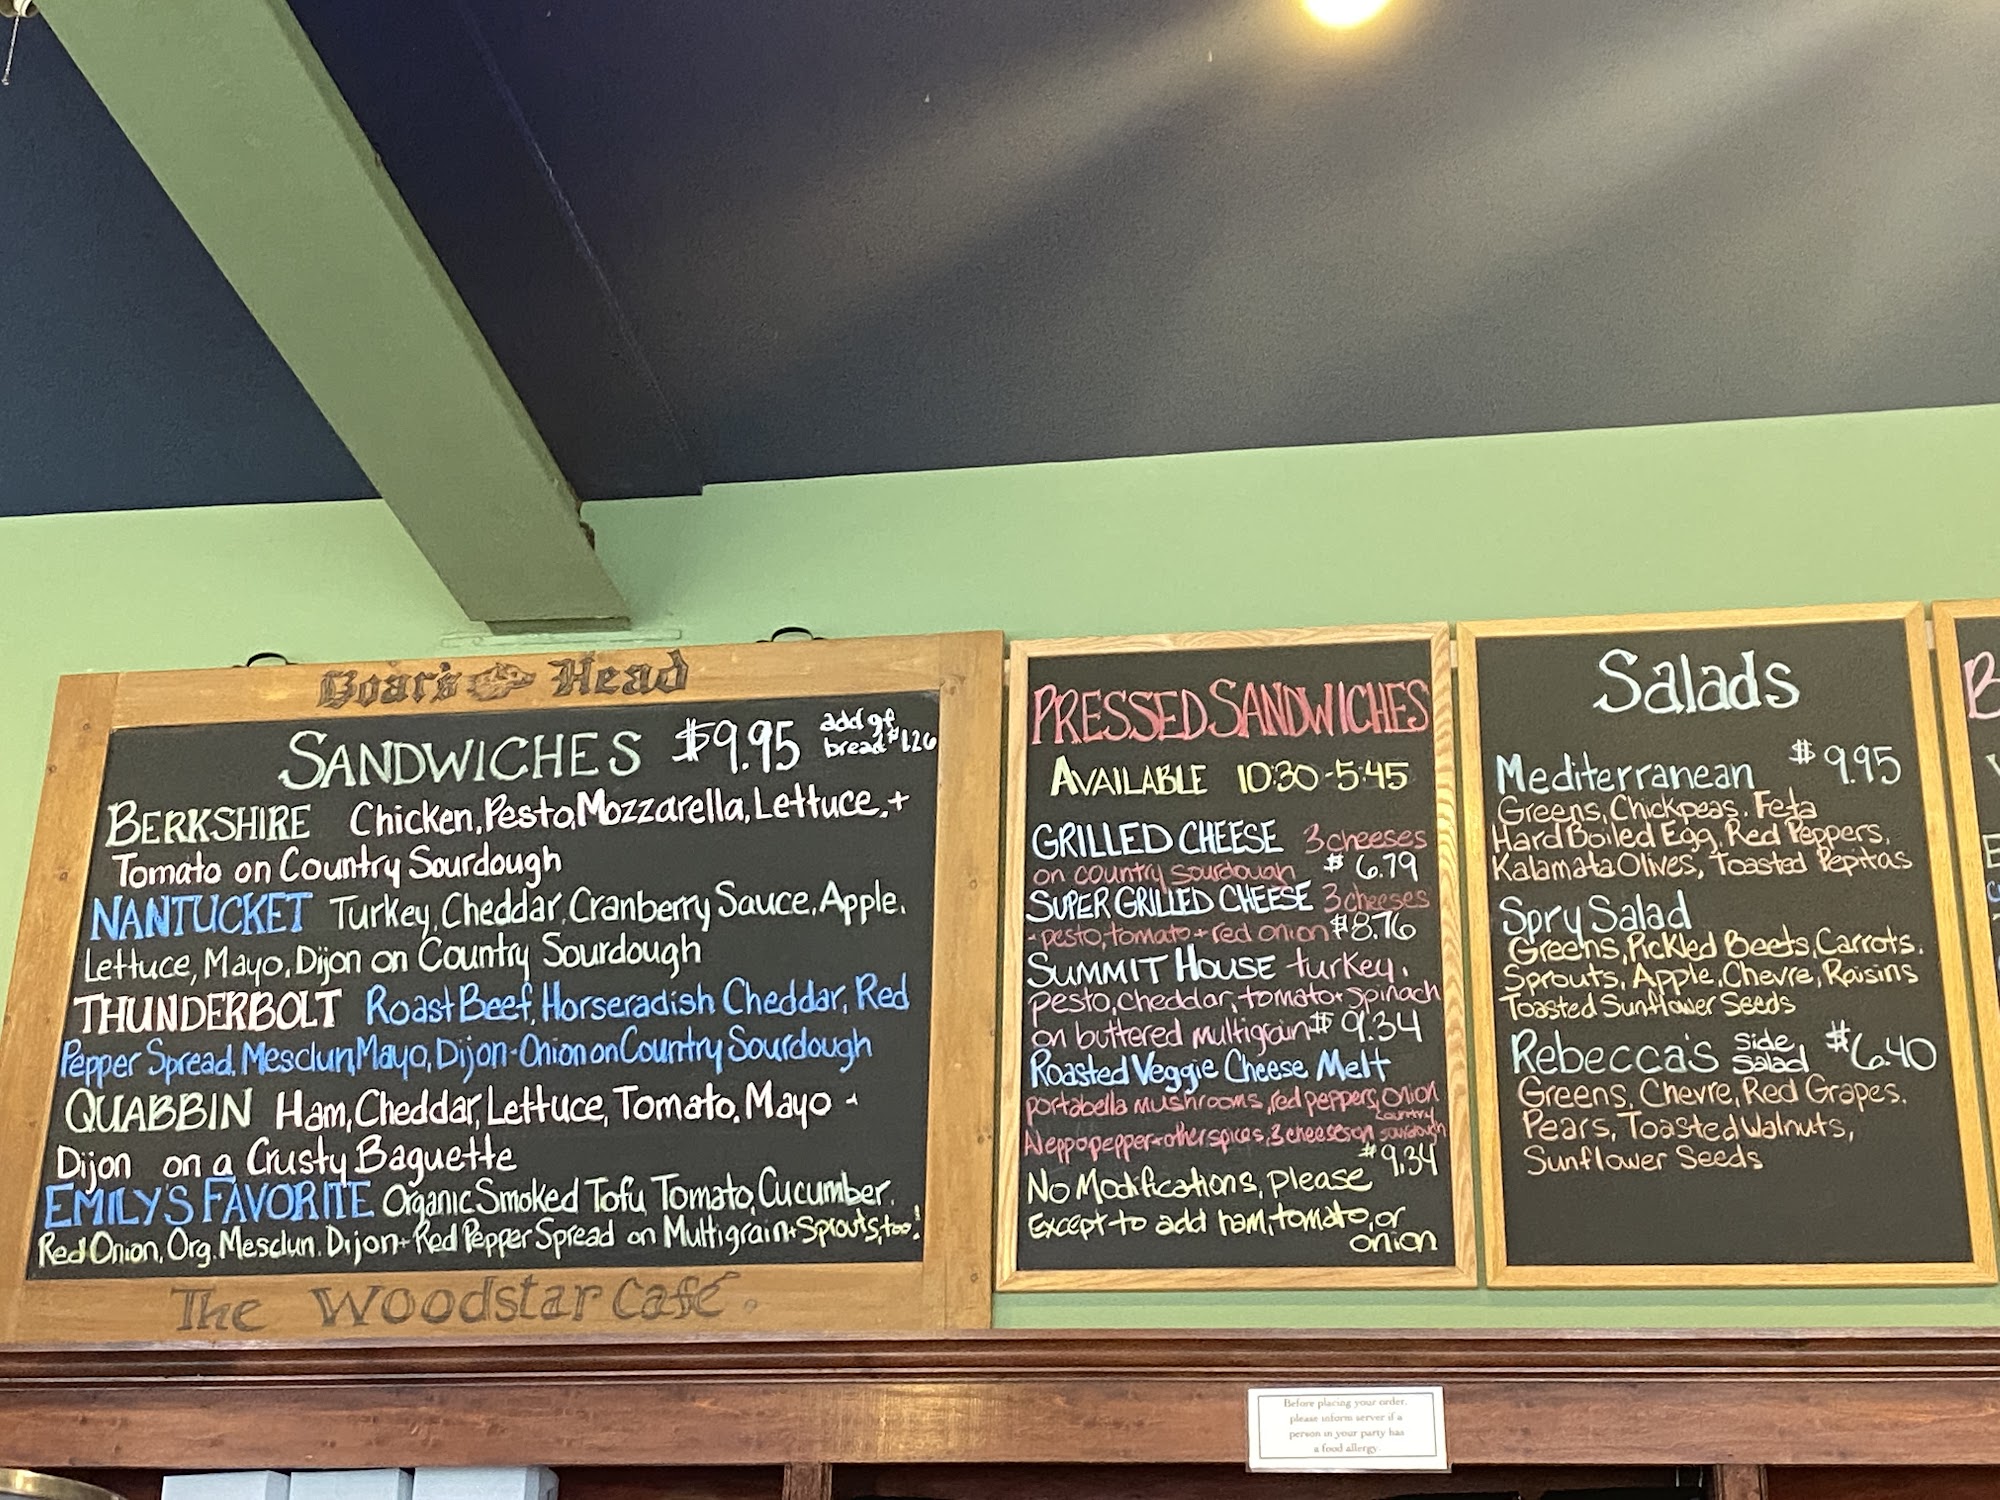 Boar's Head
SANDWICHES $9.95 add gf
bread $1.26
BERKSHIRE Chicken, Pesto, Mozzarella, Lettuce, +
Tomato on Country Sourdough
NANTUCKET Turkey, Cheddar, Cranberry Sauce, Apple,
Lettuce, Mayo, Dijon on Country Sourdough
THUNDERBOLT Roast Beef, Horseradish Cheddar, Red
Pepper Spread, Mesclun, Mayo, Dijon - Onion on Country Sourdough
QUABBIN Ham, Cheddar, Lettuce, Tomato, Mayo -
Dijon on a Crusty Baguette
EMILY'S FAVORITE Organic Smoked Tofu, Tomato, Cucumber,
Red Onion, Org. Mesclun, Dijon + Red Pepper Spread on Multigrain + Sprouts, too!
The Woodstar Café
PRESSED SANDWICHES
AVAILABLE 10:30-5:45
GRILLED CHEESE 3 cheeses
on country sourdough $6.79
SUPER GRILLED CHEESE 3 cheeses
- pesto, tomato + red onion $8.76
SUMMIT HOUSE turkey,
pesto, cheddar, tomato + spinach
on buttered multigrain $9.34
Roasted Veggie Cheese Melt
portabella mushrooms, red peppers, onion
Aleppo pepper + other spices, 3 cheeses on country sourdough
$9.34
No Modifications, please
Except to add ham, tomato, or
onion
Salads
Mediterranean $9.95
Greens, Chickpeas, Feta
Hard Boiled Egg, Red Peppers,
Kalamata Olives, Toasted Pepitas
Spry Salad
Greens, Pickled Beets, Carrots,
Sprouts, Apple, Chevre, Raisins
Toasted Sunflower Seeds
Rebecca's Side Salad $6.40
Greens, Chevre, Red Grapes,
Pears, Toasted Walnuts,
Sunflower Seeds
Before placing your order,
please inform server if a
person in your party has
a food allergy.